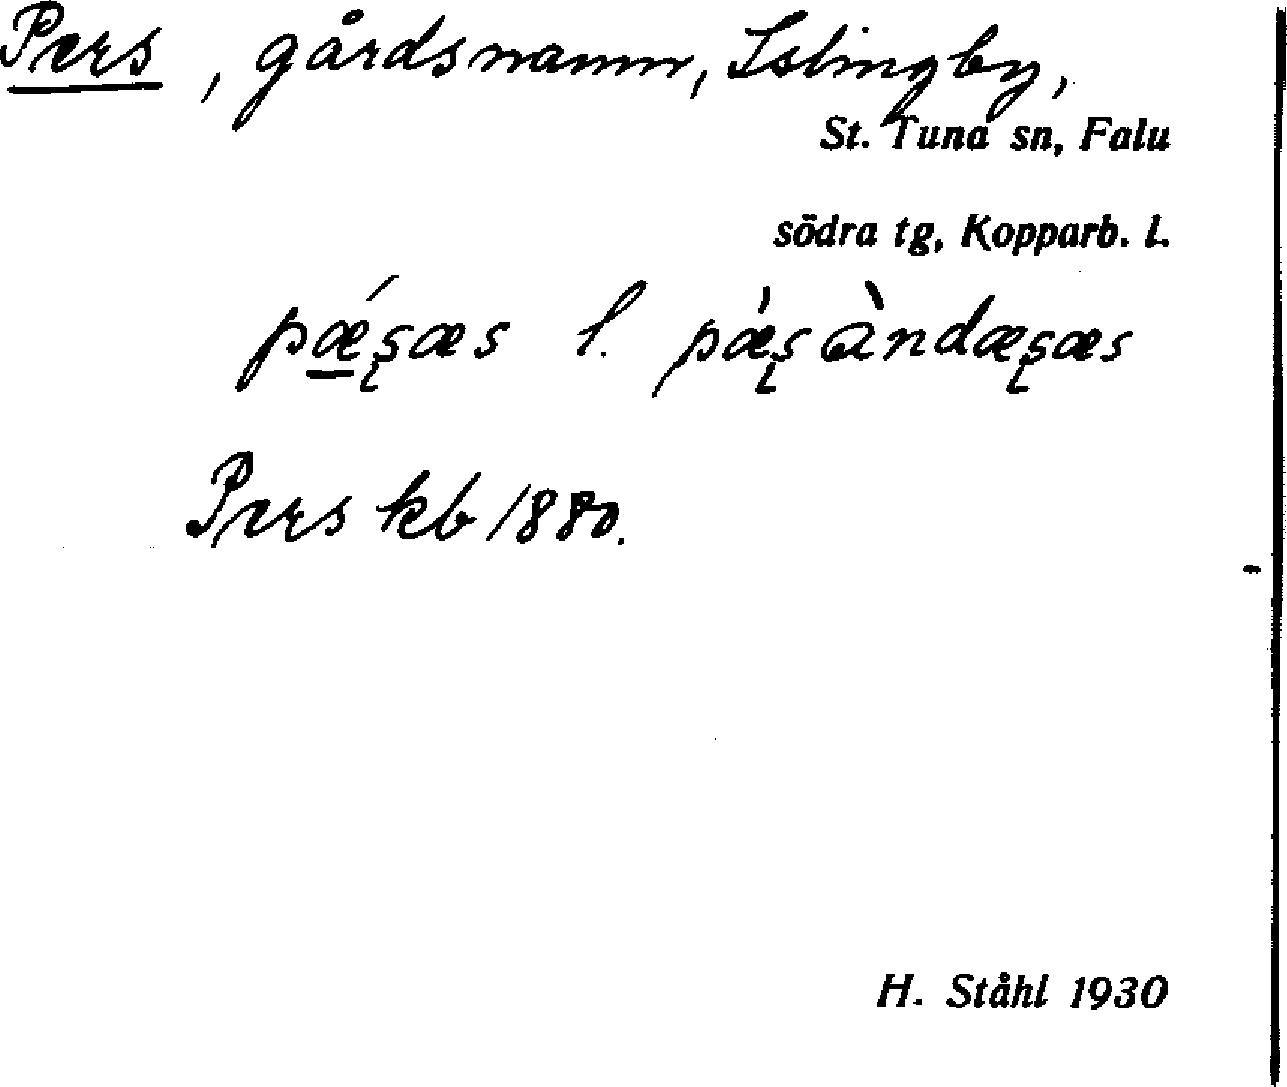 Pers, gårdsnamn, Islingby,
St. Tuna sn, Falu
södra tg, Kopparb. l.
pǽ̱ʂæs l. pǽʂ àndæʂæs
Pers kb 1880.
H. Ståhl 1930